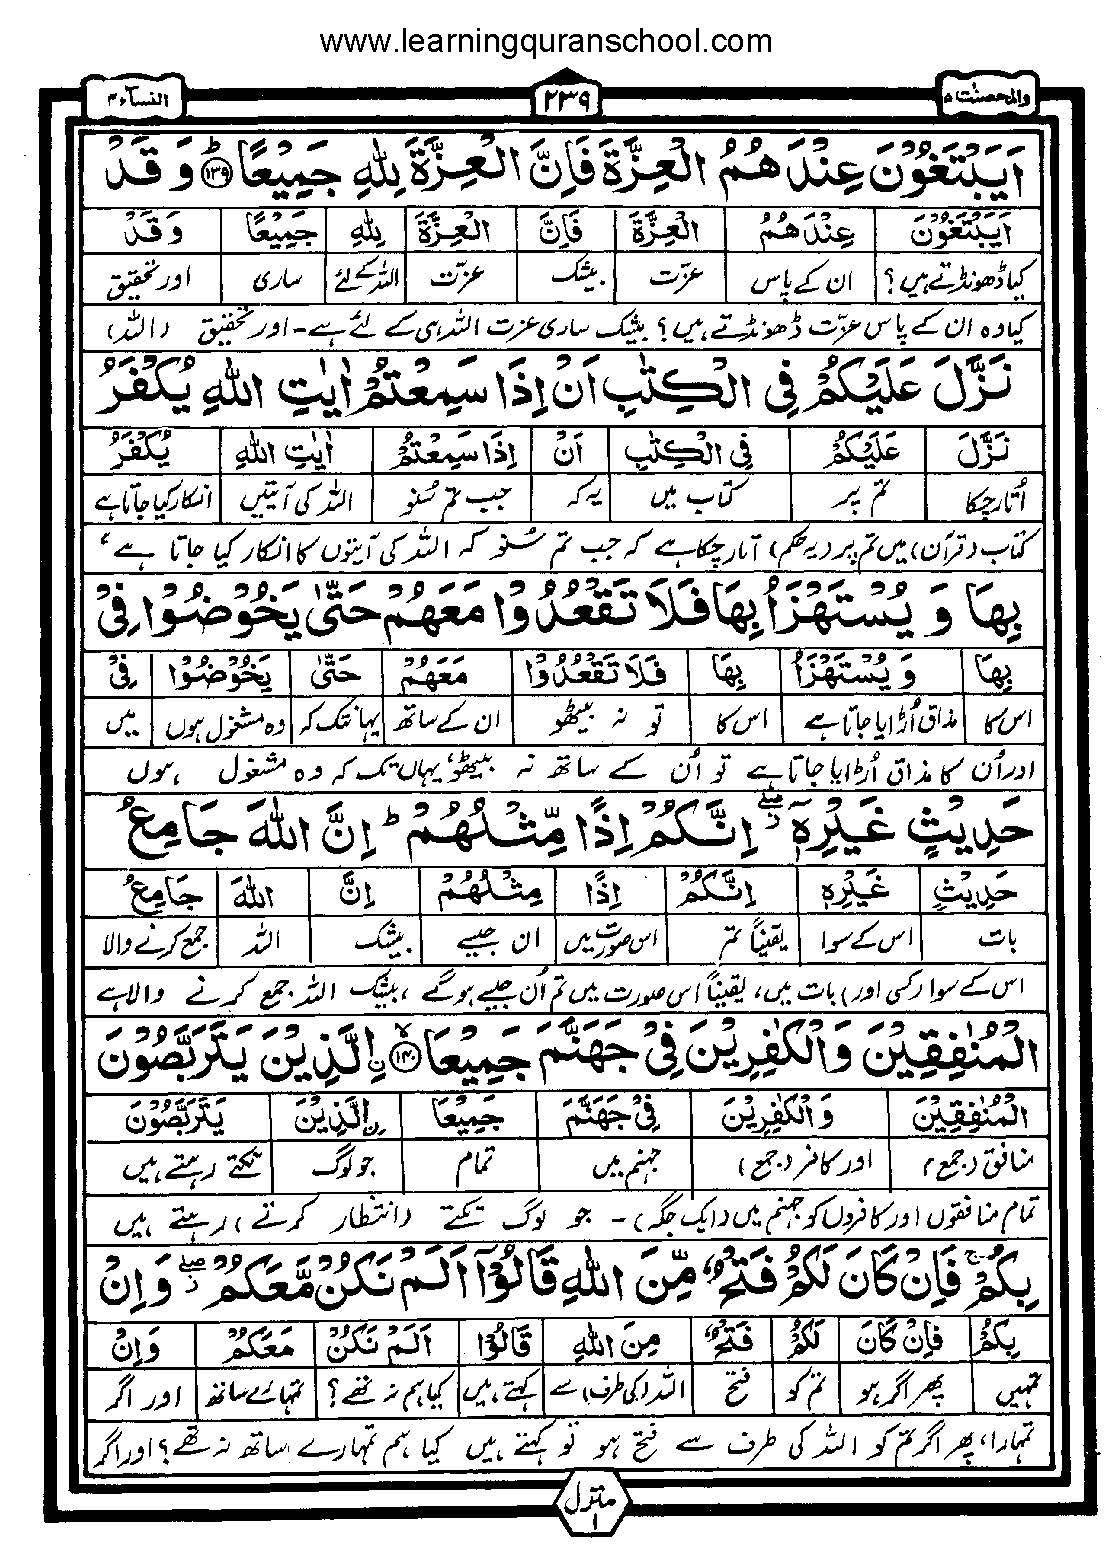 www.learningquranschool.com
والمحصنٰت ۵ ۲۳۹ النسآء ۴
اَيَبْتَغُوْنَ عِنْدَهُمُ الْعِزَّةَ فَاِنَّ الْعِزَّةَ لِلّٰهِ جَمِيْعًاؕ ۱۳۹ وَ قَدْ
اَيَبْتَغُوْنَ عِنْدَهُمُ الْعِزَّةَ فَاِنَّ الْعِزَّةَ لِلّٰهِ جَمِيْعًا وَ قَدْ
کیا ڈھونڈتے ہیں؟ ان کے پاس عزّت بیشک عزّت اللہ کے لئے ساری اور تحقیق
کیا وہ ان کے پاس عزّت ڈھونڈتے ہیں؟ بیشک ساری عزت اللہ ہی کے لئے ہے۔ اور تحقیق (اللہ)
نَزَّلَ عَلَيْكُمْ فِي الْكِتٰبِ اَنْ اِذَا سَمِعْتُمْ اٰيٰتِ اللّٰهِ يُكْفَرُ
نَزَّلَ عَلَيْكُمْ فِي الْكِتٰبِ اَنْ اِذَا سَمِعْتُمْ اٰيٰتِ اللّٰهِ يُكْفَرُ
اُتار چکا تم پر کتاب میں یہ کہ جب تم سُنو اللہ کی آیتیں انکار کیا جاتا ہے
کتاب (قرآن) میں تم پر (یہ حکم) اُتار چکا ہے کہ جب تم سُنو کہ اللہ کی آیتوں کا انکار کیا جاتا ہے،
بِهَا وَ يُسْتَهْزَاُ بِهَا فَلَا تَقْعُدُوْا مَعَهُمْ حَتّٰى يَخُوْضُوْا فِيْ
بِهَا وَ يُسْتَهْزَاُ بِهَا فَلَا تَقْعُدُوْا مَعَهُمْ حَتّٰى يَخُوْضُوْا فِيْ
اس کا مذاق اُڑایا جاتا ہے اس کا تو نہ بیٹھو ان کے ساتھ یہانتک کہ وہ مشغول ہوں میں
اور اُن کا مذاق اُڑایا جاتا ہے تو اُن کے ساتھ نہ بیٹھو، یہاں تک کہ وہ مشغول ہوں
حَدِيْثٍ غَيْرِهٖۤ ۖ اِنَّكُمْ اِذًا مِّثْلُهُمْؕ اِنَّ اللّٰهَ جَامِعُ
حَدِيْثٍ غَيْرِهٖ اِنَّكُمْ اِذًا مِثْلُهُمْ اِنَّ اللّٰهَ جَامِعُ
بات اس کے سوا یقیناً تم اس صورت میں ان جیسے بیشک اللہ جمع کرنے والا
اس کے سوا (کسی اور) بات میں، یقیناً اس صورت میں تم اُن جیسے ہو گے، بیشک اللہ جمع کرنے والا ہے
الْمُنٰفِقِيْنَ وَالْكٰفِرِيْنَ فِيْ جَهَنَّمَ جَمِيْعَا ۱۴۰ۙ ِ۟الَّذِيْنَ يَتَرَبَّصُوْنَ
الْمُنٰفِقِيْنَ وَالْكٰفِرِيْنَ فِيْ جَهَنَّمَ جَمِيْعَا ِ۟الَّذِيْنَ يَتَرَبَّصُوْنَ
منافق (جمع) اور کافر (جمع) جہنم میں تمام جو لوگ تکتے رہتے ہیں
تمام منافقوں اور کافروں کو جہنم میں (ایک جگہ)۔ جو لوگ تکتے (انتظار کرتے) رہتے ہیں
بِكُمْۚ فَاِنْ كَانَ لَكُمْ فَتْحٌ مِّنَ اللّٰهِ قَالُوْۤا اَلَمْ نَكُنْ مَّعَكُمْ ۖ وَاِنْ
بِكُمْ فَاِنْ كَانَ لَكُمْ فَتْحٌ مِنَ اللّٰهِ قَالُوْا اَلَمْ نَكُنْ مَعَكُمْ وَاِنْ
تمہیں پھر اگر ہو تم کو فتح اللہ (کی طرف) سے کہتے ہیں کیا ہم نہ تھے؟ تمہارے ساتھ اور اگر
تمہارا، پھر اگر تم کو اللہ کی طرف سے فتح ہو تو کہتے ہیں کیا ہم تمہارے ساتھ نہ تھے؟ اور اگر
منزل
۱